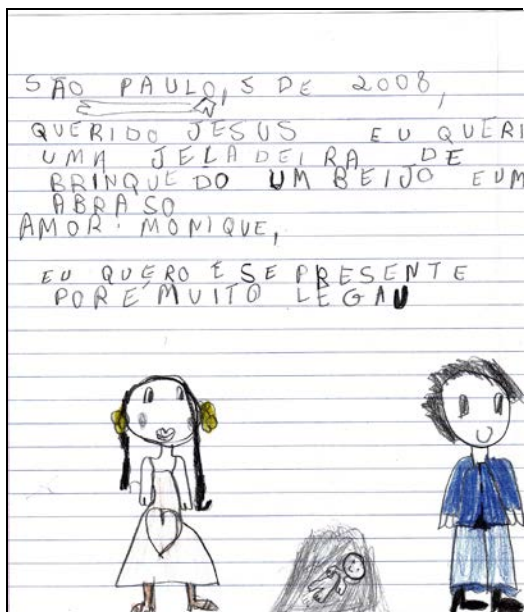 SÃO PAULO, 5 DE 2008,
QUERIDO JESUS EU QUERI
UMA JELADEIRA DE
BRINQUEDO UM BEIJO EUM
ABRASO
AMOR. MONIQUE,
EU QUERO ESE PRESENTE
POR E MUITO LEGAU